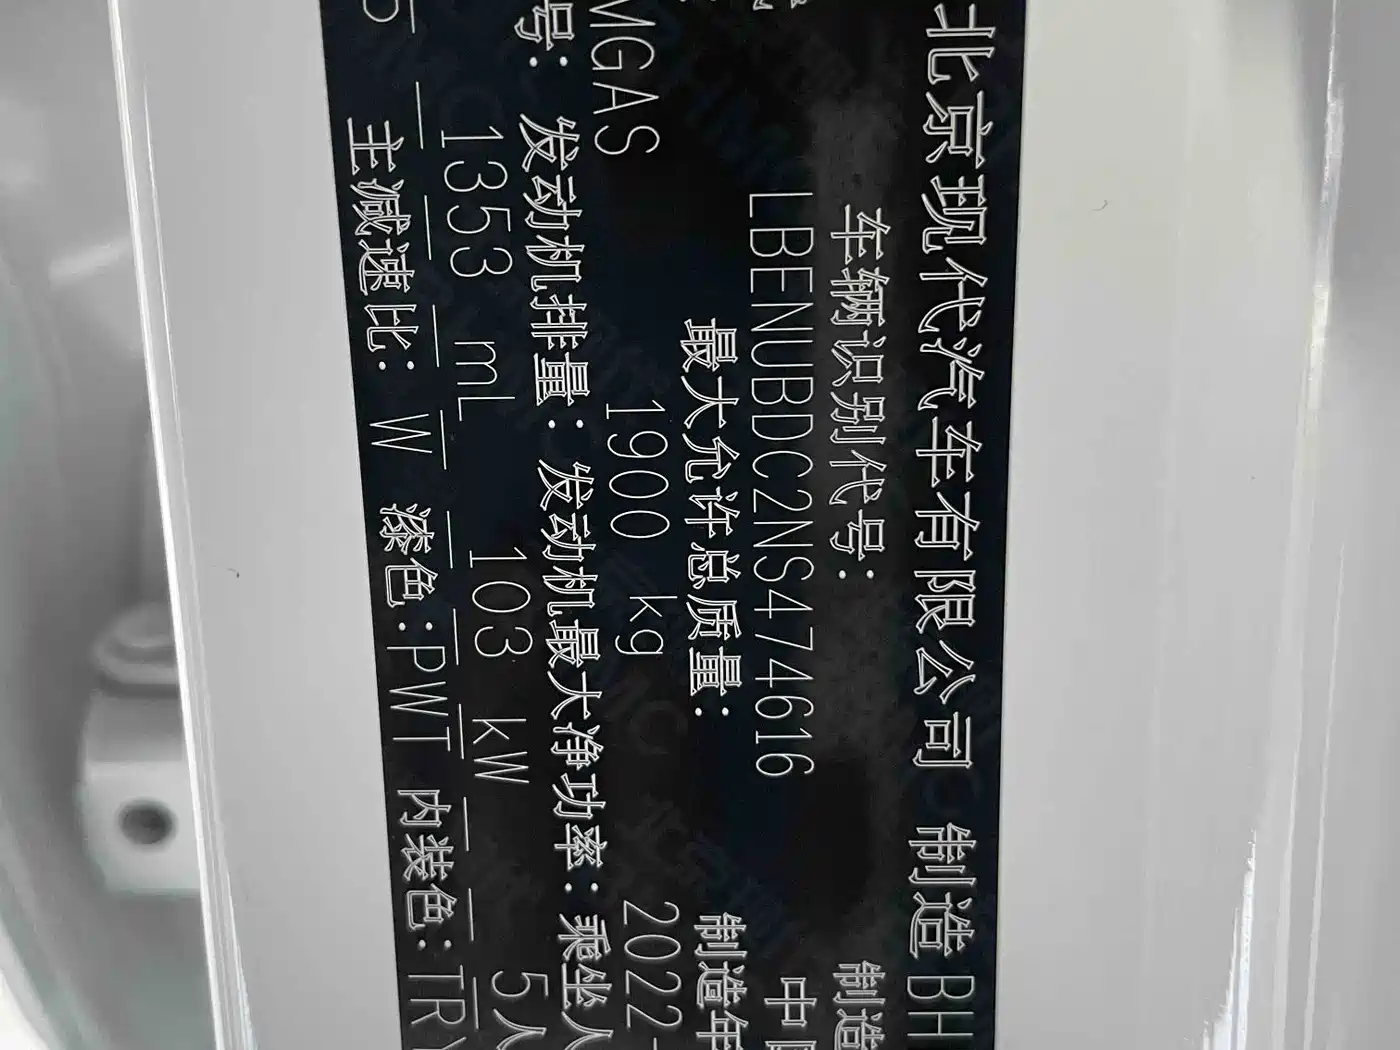 北京现代汽车有限公司 制造 BH
车辆识别代号: 制造
LBENUBDC2NS474616 中国
最大允许总质量: 制造年
MGAS 1900 kg 2022-
号: 发动机排量: 发动机最大净功率: 乘坐人
1353 mL 103 kW 5人
主减速比: W 漆色:PWT 内装色:TRY